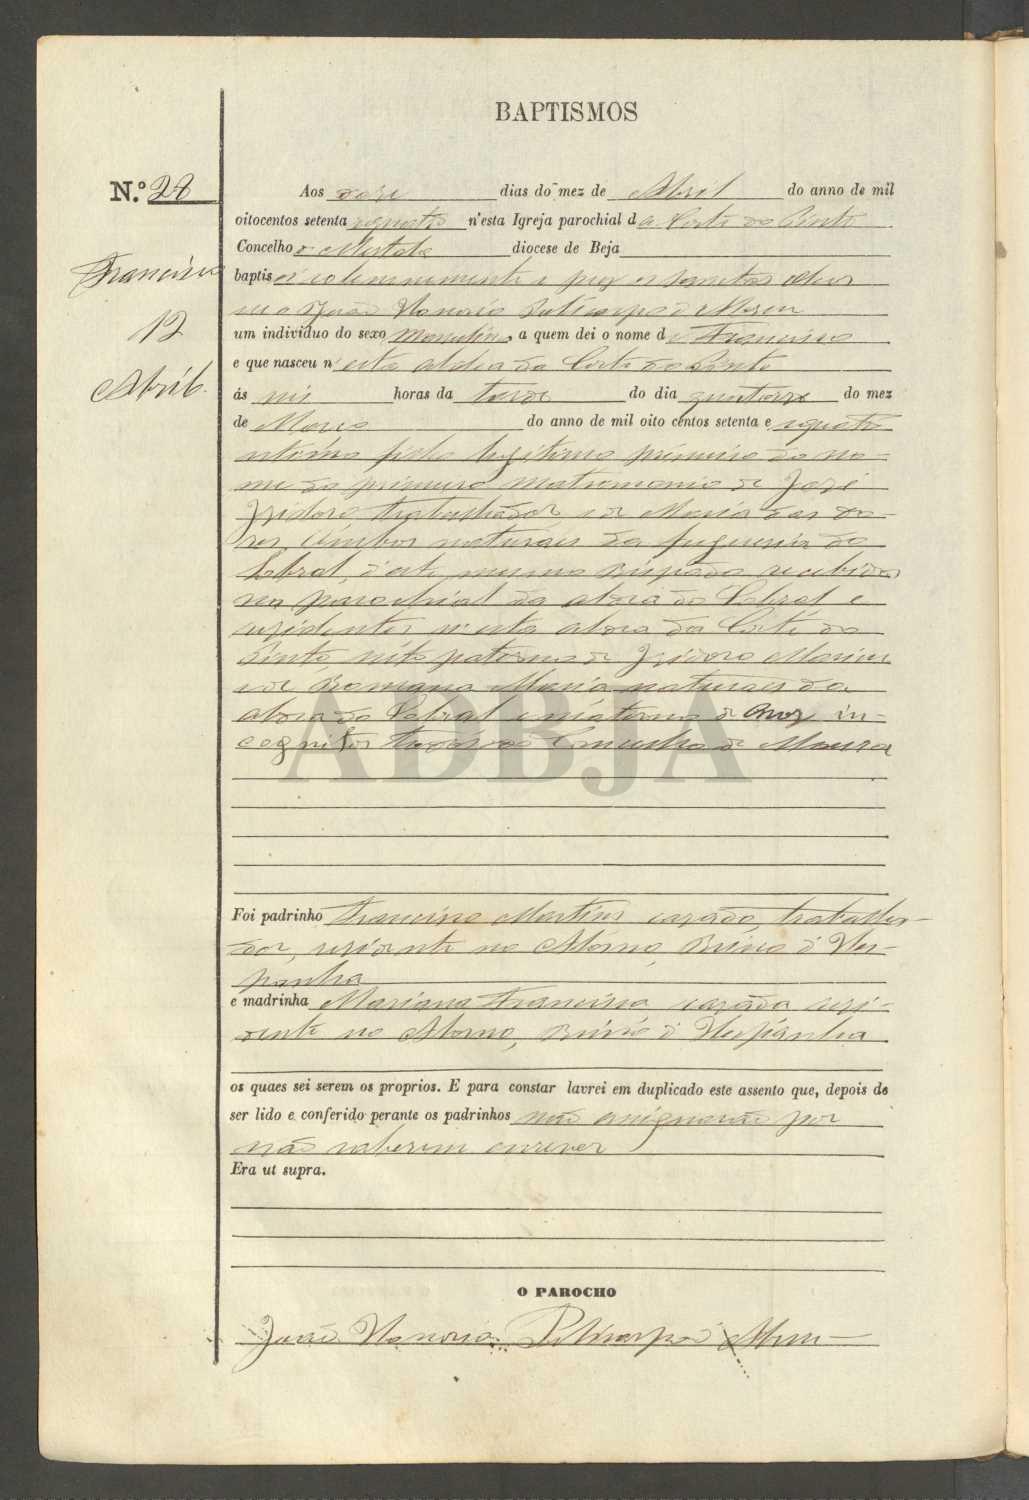 BAPTISMOS
N.º 28
Aos doze dias do mez de Abril do anno de mil
oitocentos setenta equatro n'esta Igreja parochial da Corte do Pinto
Concelho Mertola diocese de Beja
Francisco
baptisei solemnemente e puz os santos oleos
João Honorio
12
um individuo do sexo Masculino, a quem dei o nome de Francisco
e que nasceu n'esta aldea da Corte do Pinto
Abril
ás seis horas da tarde do dia quatorze do mez
de Março do anno de mil oito centos setenta e equatro
filho legitimo primeiro do no-
me do primeiro matrimonio de José
Izidoro trabalhador e de Maria das Do-
res, ambos naturais da freguesia do
Sobral, d'este mesmo Bispado recebidos
na parochial da aldea do Sobral e
residentes n'esta aldea da Corte do
Pinto, neto paterno de Izidoro
e de Romana Maria naturaes da
aldea do Sobral e materno de Avoz in-
cognitos todos do Concelho de Moura
ADBJA
Foi padrinho Francisco Martins cazado, trabalha-
dor, rezidente no d'Hes-
panha
e madrinha Mariana Francisca cazada rezi-
dente no d'Hespanha
os quaes sei serem os proprios. E para constar lavrei em duplicado este assento que, depois de
ser lido e conferido perante os padrinhos não assignarão por
não saberem escrever
Era ut supra.
O PAROCHO
João Honorio